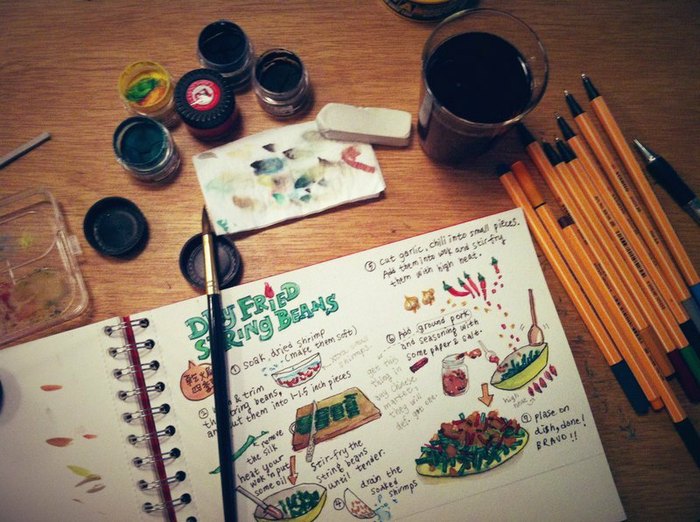 DRY FRIED
STRING BEANS
① soak dried shrimp
(make them soft)
& trim
string beans,
cut them into 1-1.5 inch pieces
remove
the silk
heat your
wok n put
some oil
Stir-fry the
string beans
until tender.
④ drain the
soaked
shrimps
⑤ cut garlic, chili into small pieces.
Add them into wok and stir-fry
them with high heat.
⑥ Add ground pork
and seasoning with
some paper & salt.
high
heat
⑦ plase on
dish, done!
BRAVO!!